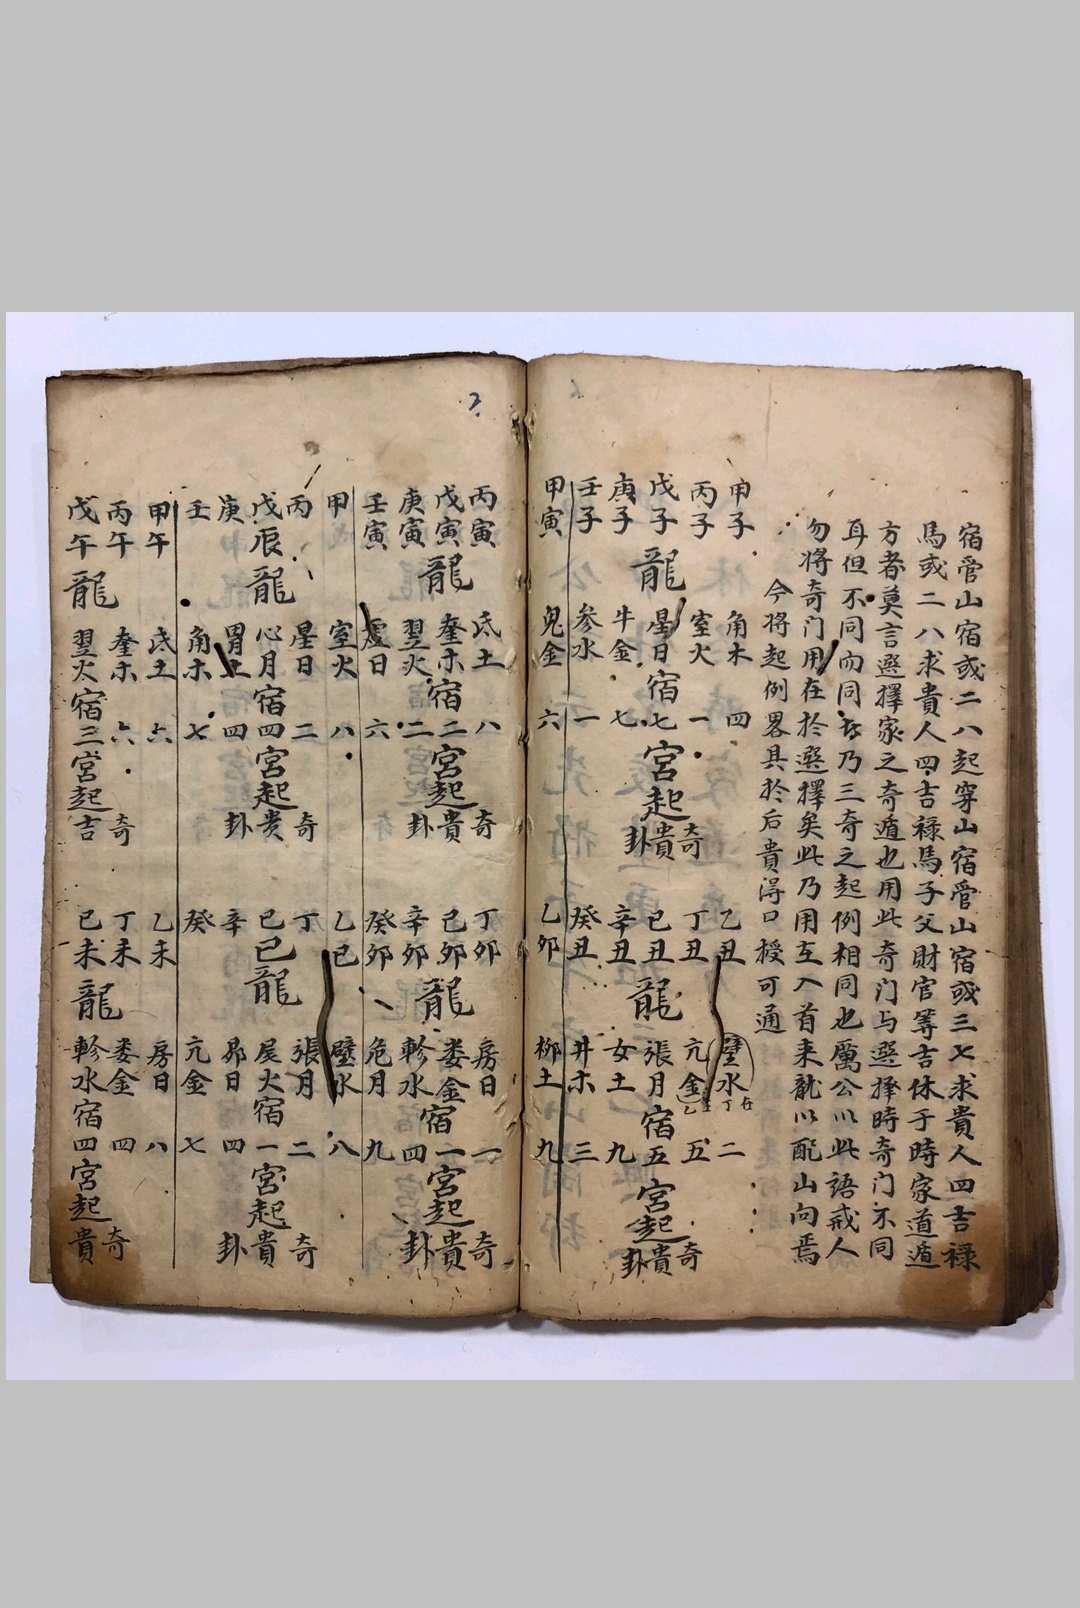 宿管山宿或二八起穿山宿管山宿或三七求貴人四吉祿
馬或二八求貴人四吉禄馬子父財官等吉休于時家道遁
方者莫言選擇家之奇遁也用此奇门与選擇時奇门不同
耳但不同而同者乃三奇之起例相同也厲公以此語戒人
勿将奇门用在於選擇矣此乃用在入首来龍以配山向焉
今将起例畧具於后貴得口授可通
甲子 角木 四 乙丑 壁水 二
丙子 室火 一 奇 丁丑 亢金 五 奇
戊子龍星日宿七宮起貴 己丑龍張月宿五宮起貴
庚子 牛金 七 卦 辛丑 女土 九 卦
壬子 参水 一 癸丑 井木 三
甲寅 鬼金 六 乙卯 柳土 九
丙寅 氐土 八 奇 丁卯 房日 一 奇
戊寅龍奎木宿二宮起貴 己卯龍娄金宿一宮起貴
庚寅 翌火 二 卦 辛卯 軫水 四 卦
壬寅 虚日 六 癸卯 危月 九
甲 室火 八 乙巳 壁水 八
丙 星日 二 奇 丁 張月 二 奇
戊辰龍心月宿四宮起贵 己巳龍尾火宿一宮起貴
庚 胃土 四 卦 辛 昴日 四 卦
壬 角木 七 癸 亢金 七
甲午 氐土 六 乙未 房日 八
丙午 奎木 六 奇 丁未 娄金 四 奇
戊午龍翌火宿三宮起吉 己未龍軫水宿四宮起貴